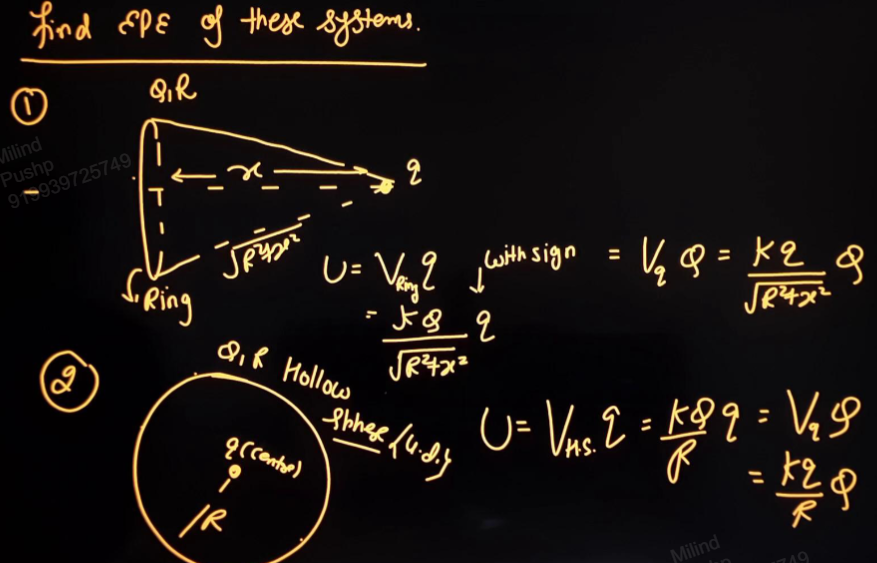 find EPE of these systems.
①
Q,R
x
q
√R²+x²
Ring
U = V_Ring q
with sign
= V_q Q = Kq/√R²+x² Q
= KQ/√R²+x² q
②
Q, R Hollow
sphere (u.d.)
q (centre)
R
U = V_H.S. q = KQ/R q = V_q Q
= Kq/R Q
Milind
Pushp
919939725749
Milind